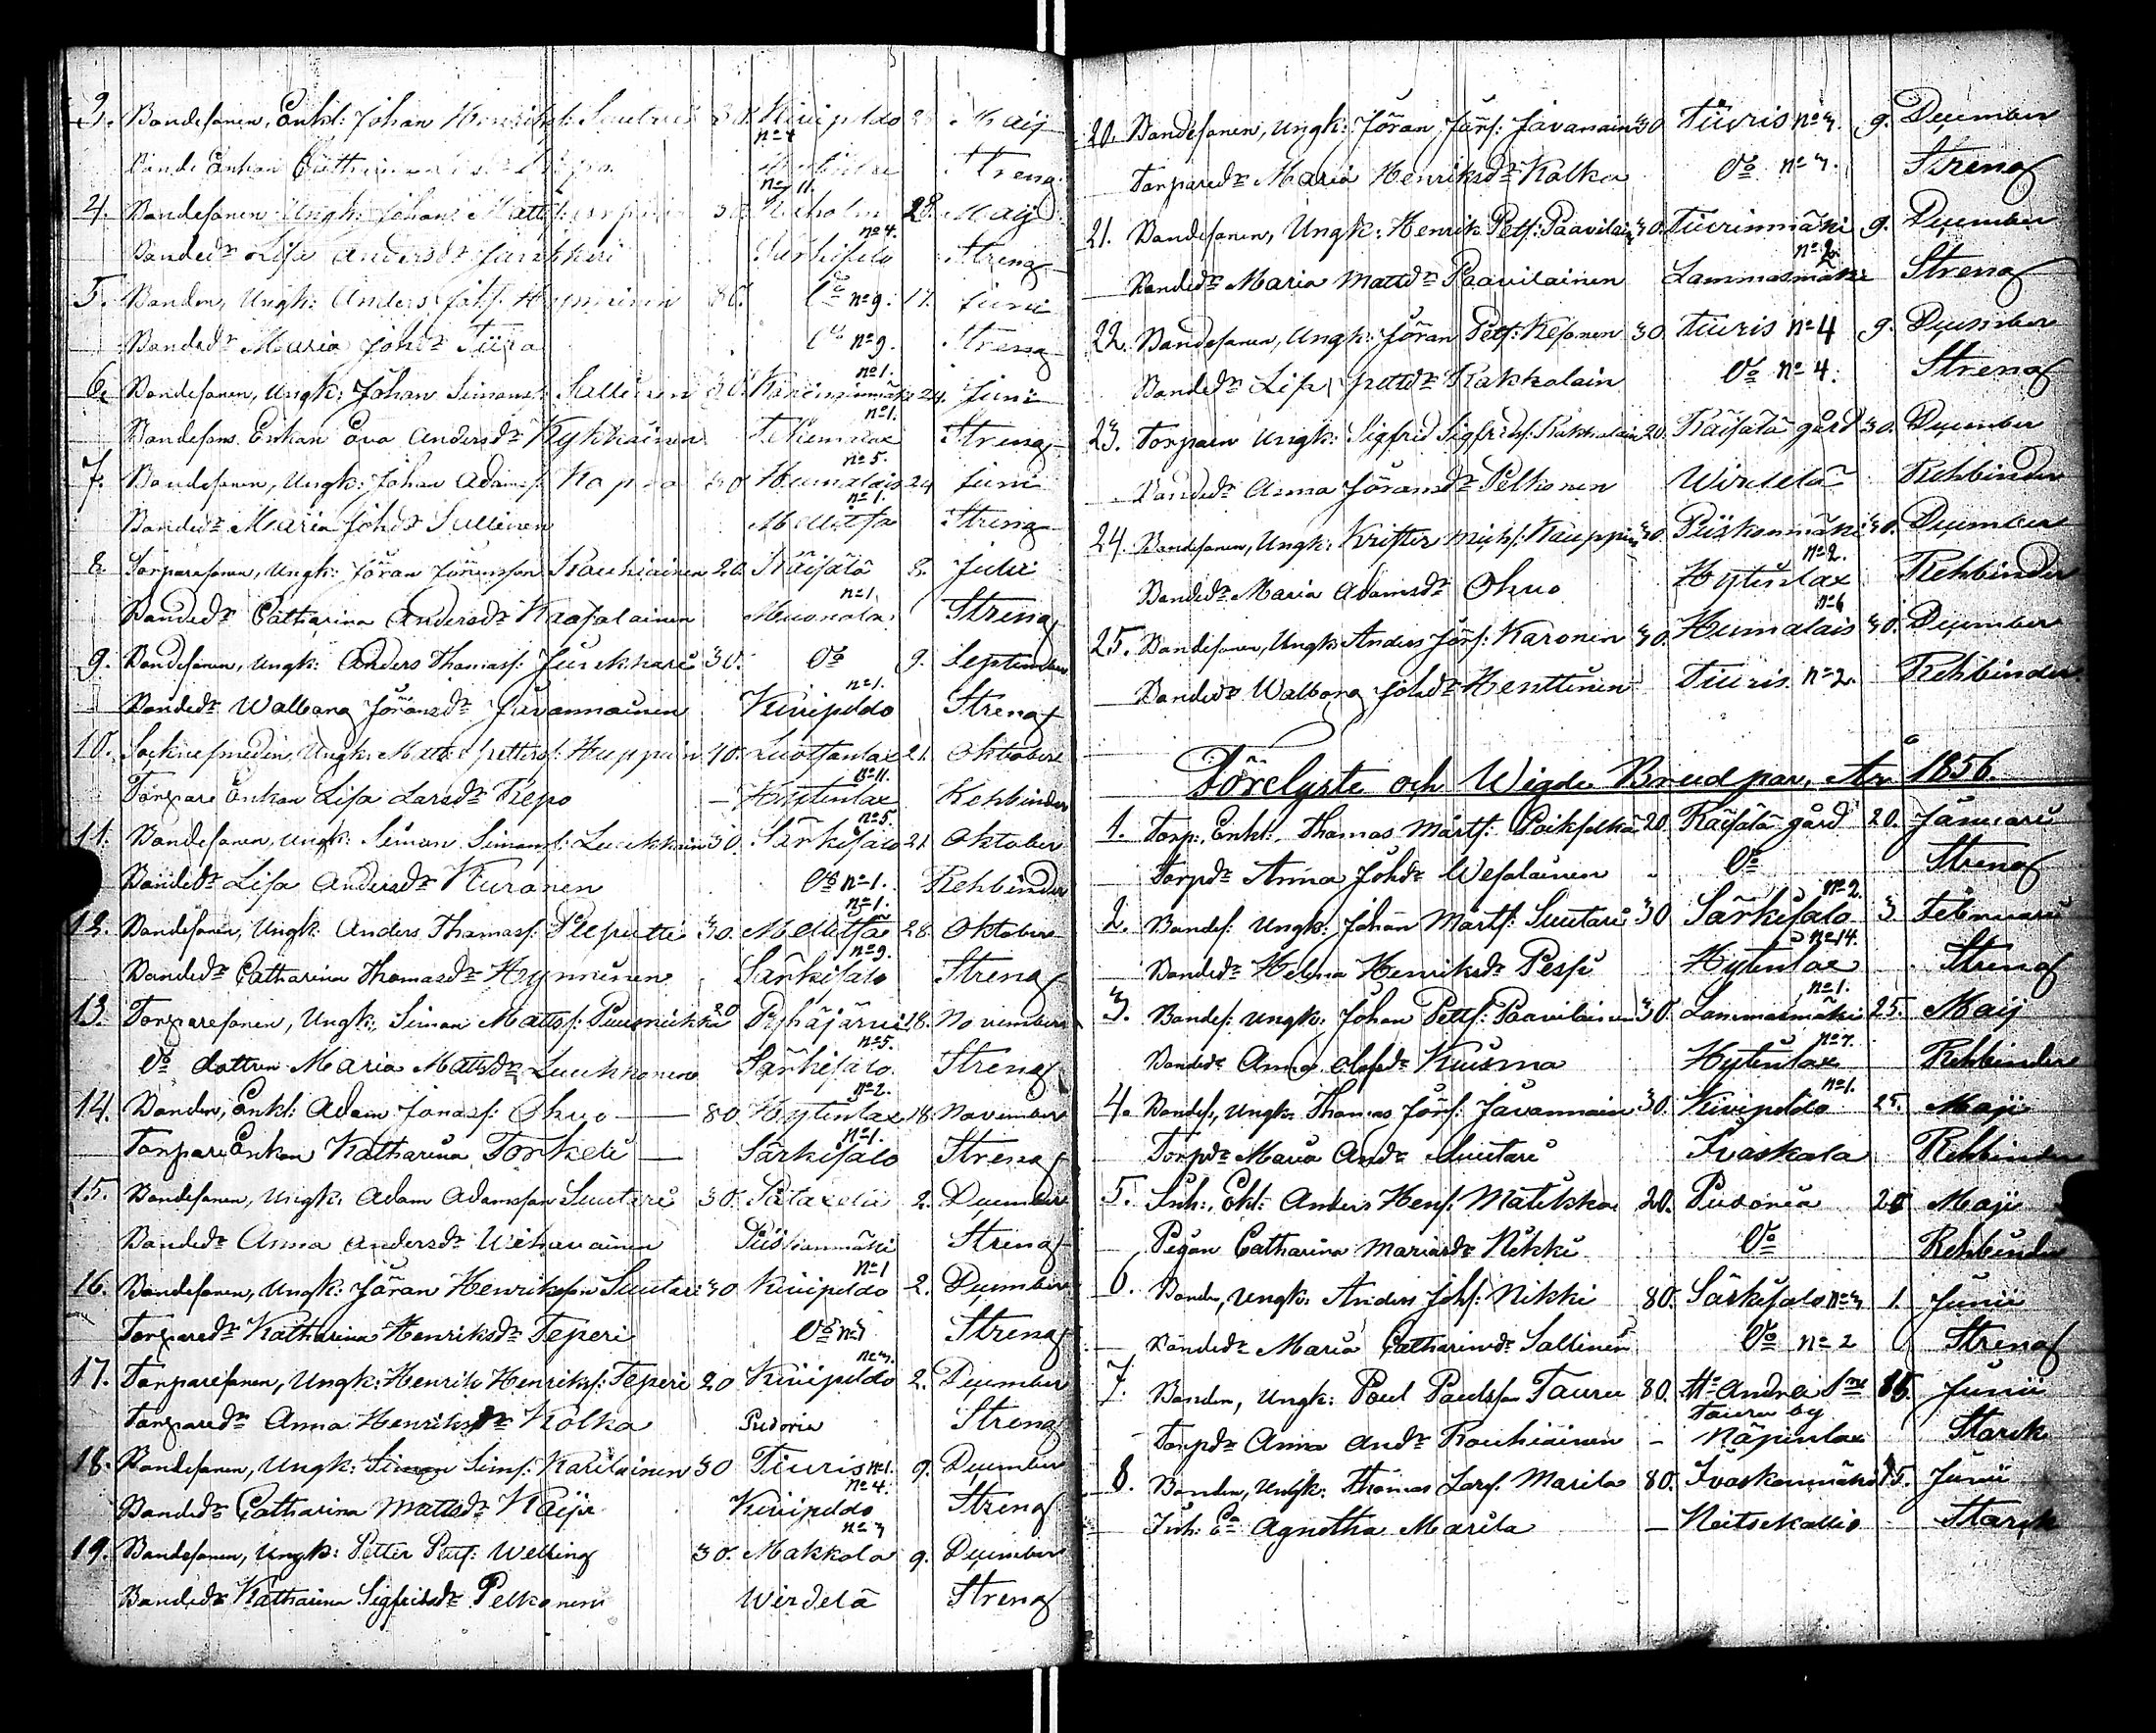 3. Bondesonen, Enkl: Johan Suutari 30. Kivipeldo Maij
n:o 4
Bonde Enkan Streng
n:o 11.
4. Bondesonen Ungk: Johan Matts: 30. 28. Maij
n:o 4.
Bonded:r Lisa Andersd:r Junkkari Särkisalo Streng
5. Bonden, Ungk: Anders Johs: Hynninen 80. D:o n:o 9. 17. Juni
Bonded:r Maria Johd:r Tiira D:o n:o 9. Streng
n:o 1.
6. Bondesonen, Ungk: Johan Simons: Sallinen 30. 24. Juni
n:o 1.
Bondesons Enkan Eva Andersd:r Kykkäinen Streng
n:o 5.
7. Bondesonen, Ungk: Johan Adams: Kopra 30 Humalais 24 Juni
n:o 1.
Bonded:r Maria Johd:r Sallinen Melitsa Streng
8. Torparesonen, Ungk: Jöran Jöransson Rouhiainen 20. Räisälä 8. Julii
n:o 1.
Bonded:r Catharina Andersd:r Kaasalainen Muonala Streng
9. Bondesonen, Ungk: Anders Thomass: Junkkari 30. D:o 9. September
n:o 1.
Bonded:r Walborg Jöransd:r Javannainen Kivipeldo Streng
10. Socknesmeden, Ungk: Matts Petters: Huppoin 40. 21. Oktober
n:o 11.
Torpare Enkan Lisa Larsd:r Repo — Hytinlax Rehbinder
n:o 5.
11. Bondesonen, Ungk: Simon Simons: Luukkoin 30. Särkisalo 21 Oktober
Bonded:r Lisa Andersd:r Kuronen D:o n:o 1. Rehbinder
n:o 1.
12. Bondesonen, Ungk: Anders Thomass: 30. Melitsa 28. Oktober
n:o 9.
Bonded:r Catharina Thomasd:r Hynninen Särkisalo Streng
13. Torparesonen, Ungk: Simon Matts: Puusnikka 20 Pyhäjärvi 18. November
n:o 5.
D:o dottren Maria Mattsd:r Luukkonen Särkisalo Streng
n:o 2.
14. Bonden, Enkl: Adam Jonas: Ohvo — 80 Hytinlax 18. November
n:o 1.
Torpare Enkan Katharina Torkeli — Särkisalo Streng
15. Bondesonen, Ungk: Adam Adamsson Suutari 30. 2. December
Bonded:r Anna Andersd:r Wihavainen Piiskonmäki Streng
n:o 1
16. Bondesonen, Ungk: Jöran Henriksson Suutari 30 Kivipeldo 2. December
Torpared:r Katharina Henriksd:r Teperi D:o n:o 3 Streng
n:o 3.
17. Torparesonen, Ungk: Henrik Henriks: Teperi 20 Kivipeldo 2. December
Torpared:r Anna Henriksd:r Kolka Pudoria Streng
18. Bondesonen, Ungk: Simon Sims: Karilainen 30 Tiuris n:o 1. 9. December
n:o 4.
Bonded:r Catharina Mattsd:r Kaija Kivipeldo Streng
n:o 3
19. Bondesonen, Ungk: Petter Pets: Welling 30. Makkola 9. December
Bonded:r Katharina Sigfridsd:r Pelkonen Wirdelä Streng
20. Bondesonen, Ungk: Jöran Jörs: Javanain 30. Tiuris n:o 3. 9. December
Torpared:r Maria Henriksd:r Kolka D:o n:o 3. Streng
21. Bondesonen, Ungk: Henrik Pets: Paavilain 30. Tiurinmäki 9. December
n:o 2.
Bonded:r Maria Mattsd:r Paavilainen Lammasmäki Streng
22. Bondesonen, Ungk: Jöran Pets: Kesonen 30. Tiuris n:o 4 9. December
Bonded:r Lisa Pettersd:r Kakkolain D:o n:o 4. Streng
23. Torparen Ungk: Sigfrid Sigfrids: Kukkolain 20. Räisälä gård 30. December
Bonded:r Anna Jöransd:r Pelkonen Wirdelä Rehbinder
24. Bondesonen, Ungk: Krister Michs: Kauppin 30. Piiskonmäki 30. December
n:o 2.
Bonded:r Maria Adamsd:r Ohvo Hytinlax Rehbinder
n:o 6
25. Bondesonen, Ungk: Anders Jörs: Karonen 30. Humalais 30. December
Bonded:r Walborg Johd:r Henttinen Tiuris n:o 2. Rehbinder
Förelyste och Wigde Brudpar, År 1856.
1. Torp: Enkl: Thomas Mårts: Poikselkä 20. Räisälä gård 20. Januarii
Torpd:r Anna Johd:r Wesalainen D:o Streng
n:o 2.
2. Bondes: Ungk: Johan Mårts: Suutari 30 Särkisalo 3. Februarii
n:o 14.
Bonded:r Helena Henriksd:r Pessi Hytinlax Streng
n:o 1.
3. Bondes: Ungk: Johan Petts: Paavilainen 30. Lammasmäki 25. Maij
n:o 7.
Bonded:r Anna Olofsd:r Kuisma Hytinlax Rehbinder
n:o 1.
4. Bondes:, Ungk: Thomas Jörs: Javannain 30. Kivipeldo 25. Maji
Torpd:r Maria And:r Suutari Ivaskala Rehbinder
5. Inh:, Ekl: Anders Hens: Matikka 20. Pudoria 26 Maji
Pigan Catharina Mariasd:r Nikki D:o Rehbinder
6. Bonden, Ungk: Anders Johs: Nikki 80. Särkisalo n:o 3 1. Junii
Bonded:r Maria Catharinad:r Sallinen D:o n:o 2 Streng
7. Bonden, Ungk: Paul Paulsson Tauru 80. S:t Andreæ S:n 15. Junii
Tauru by
Torpd:r Anna And:r Rouhiainen — Näpinlax Starck
8. Bonden, Ungk: Thomas Lars: Marila 80. Ivaskanmäki 15. Junii
Inh: E:a Agnetha Marila — Noitsekallio Starck